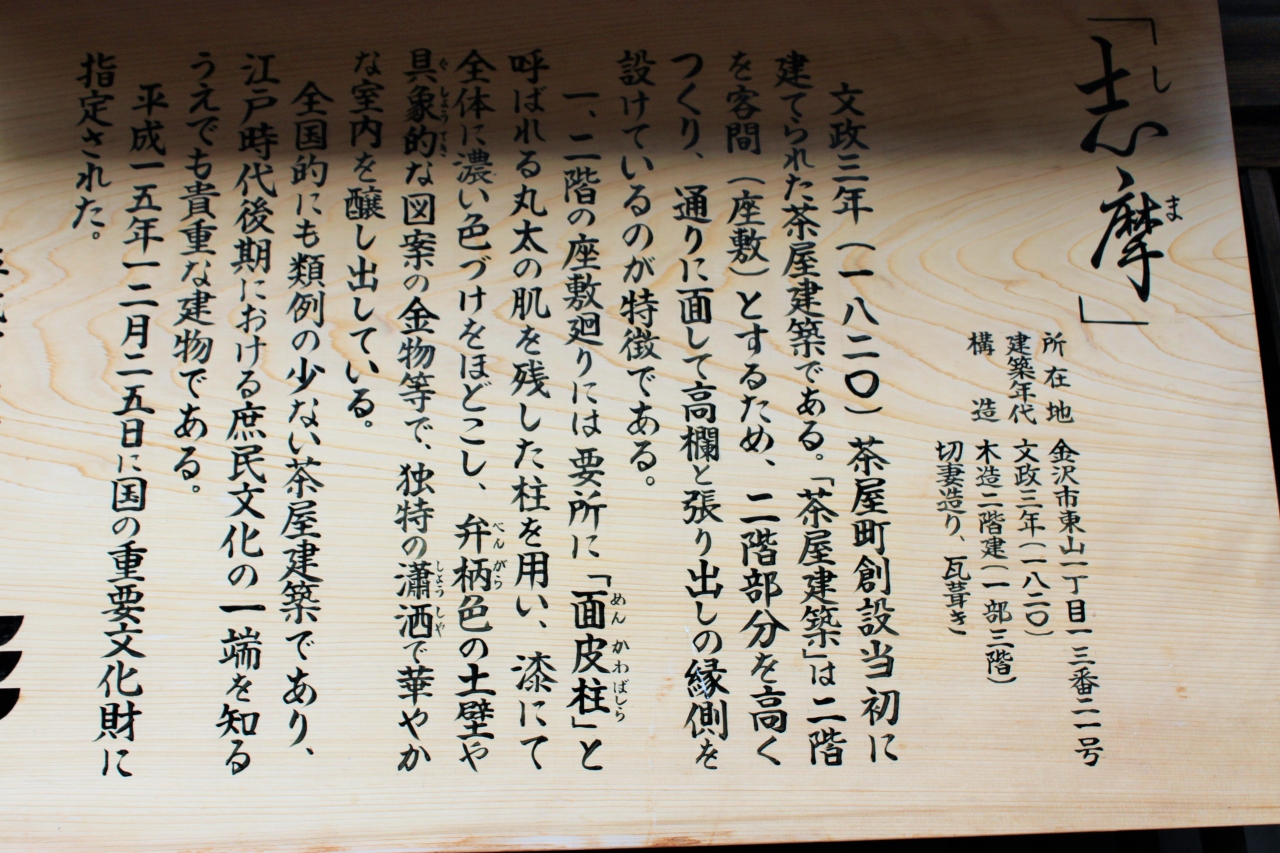 「志摩」
しま
所在地 金沢市東山一丁目一三番二一号
建築年代 文政三年(一八二〇)
構造 木造二階建(一部三階)
切妻造り、瓦葺き
文政三年(一八二〇)茶屋町創設当初に
建てられた茶屋建築である。「茶屋建築」は二階
を客間(座敷)とするため、二階部分を高く
つくり、通りに面して高欄と張り出しの縁側を
設けているのが特徴である。
一、二階の座敷廻りには要所に「面皮柱」と
めんかわばしら
呼ばれる丸太の肌を残した柱を用い、漆にて
全体に濃い色づけをほどこし、弁柄色の土壁や
べんがら
具象的な図案の金物等で、独特の瀟洒で華やか
ぐしょうてき
しょうしゃ
な室内を醸し出している。
全国的にも類例の少ない茶屋建築であり、
江戸時代後期における庶民文化の一端を知る
うえでも貴重な建物である。
平成一五年一二月二五日に国の重要文化財に
指定された。